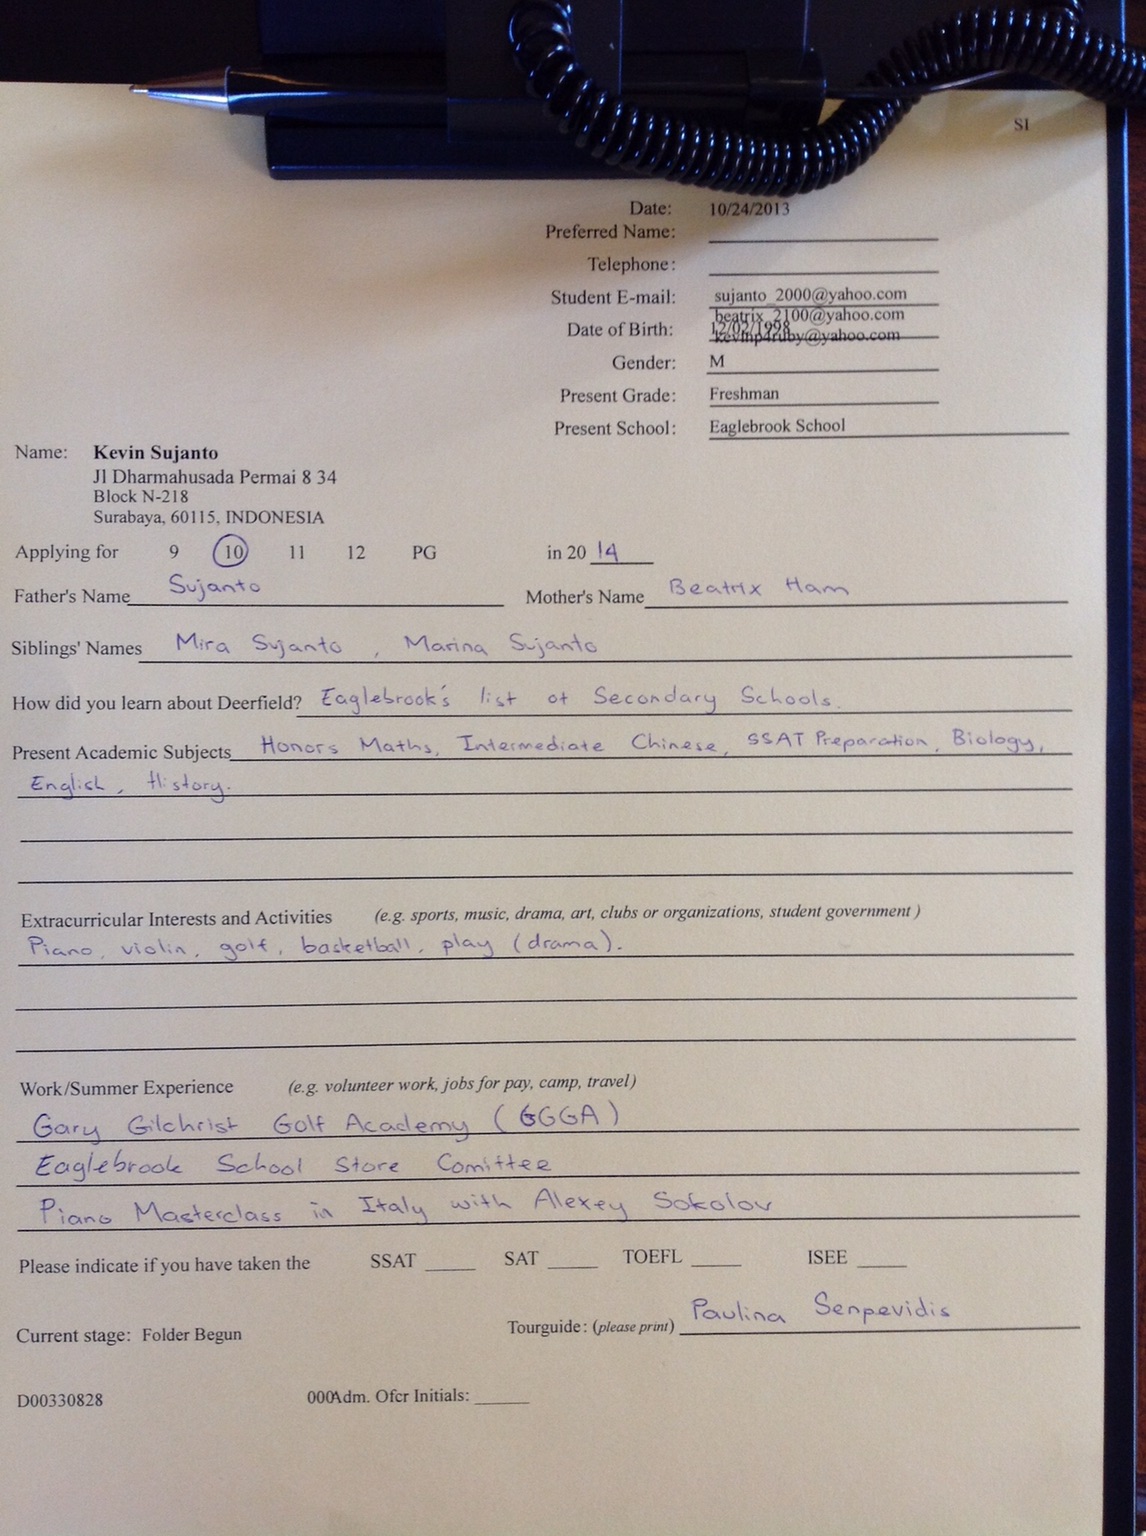 SI
Date: 10/24/2013
Preferred Name:
Telephone:
Student E-mail: sujanto_2000@yahoo.com
beatrix_2100@yahoo.com
Date of Birth: 12/02/1998
kevinp4ruby@yahoo.com
Gender: M
Present Grade: Freshman
Present School: Eaglebrook School
Name: Kevin Sujanto
Jl Dharmahusada Permai 8 34
Block N-218
Surabaya, 60115, INDONESIA
Applying for 9 10 11 12 PG in 20 14
Father's Name Sujanto Mother's Name Beatrix Ham
Siblings' Names Mira Sujanto , Marina Sujanto
How did you learn about Deerfield? Eaglebrook's list of Secondary Schools.
Present Academic Subjects Honors Maths, Intermediate Chinese, SSAT Preparation, Biology,
English, History.
Extracurricular Interests and Activities (e.g. sports, music, drama, art, clubs or organizations, student government )
Piano, violin, golf, basketball, play (drama).
Work/Summer Experience (e.g. volunteer work, jobs for pay, camp, travel)
Gary Gilchrist Golf Academy (GGGA)
Eaglebrook School Store Comittee
Piano Masterclass in Italy with Alexey Sokolov
Please indicate if you have taken the SSAT SAT TOEFL ISEE
Current stage: Folder Begun Tourguide: (please print) Paulina Senpevidis
D00330828 000Adm. Ofcr Initials: